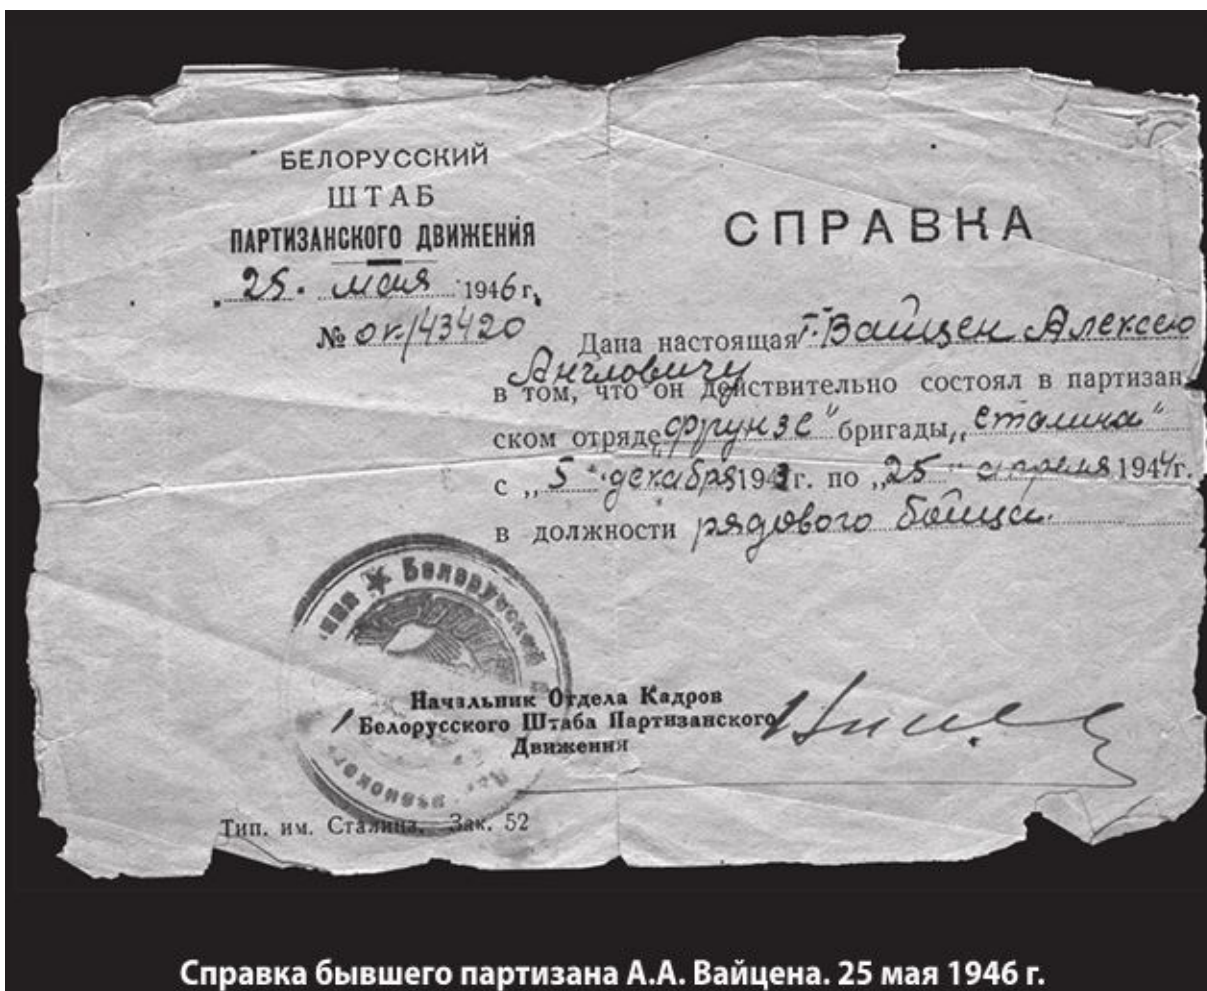 БЕЛОРУССКИЙ
ШТАБ
ПАРТИЗАНСКОГО ДВИЖЕНИЯ
25. мая 1946 г.
№ ок/43420
СПРАВКА
Дана настоящая т. Вайцен Алексею
Англовичу
в том, что он действительно состоял в партизан-
ском отряде „Фрунзе" бригады „Сталина"
с „5" декабря 1943 г. по „25" апреля 1944 г.
в должности рядового бойца.
Белорусский
Начальник Отдела Кадров
Белорусского Штаба Партизанского
Движения
Тип. им. Сталина. Зак. 52
Справка бывшего партизана А.А. Вайцена. 25 мая 1946 г.